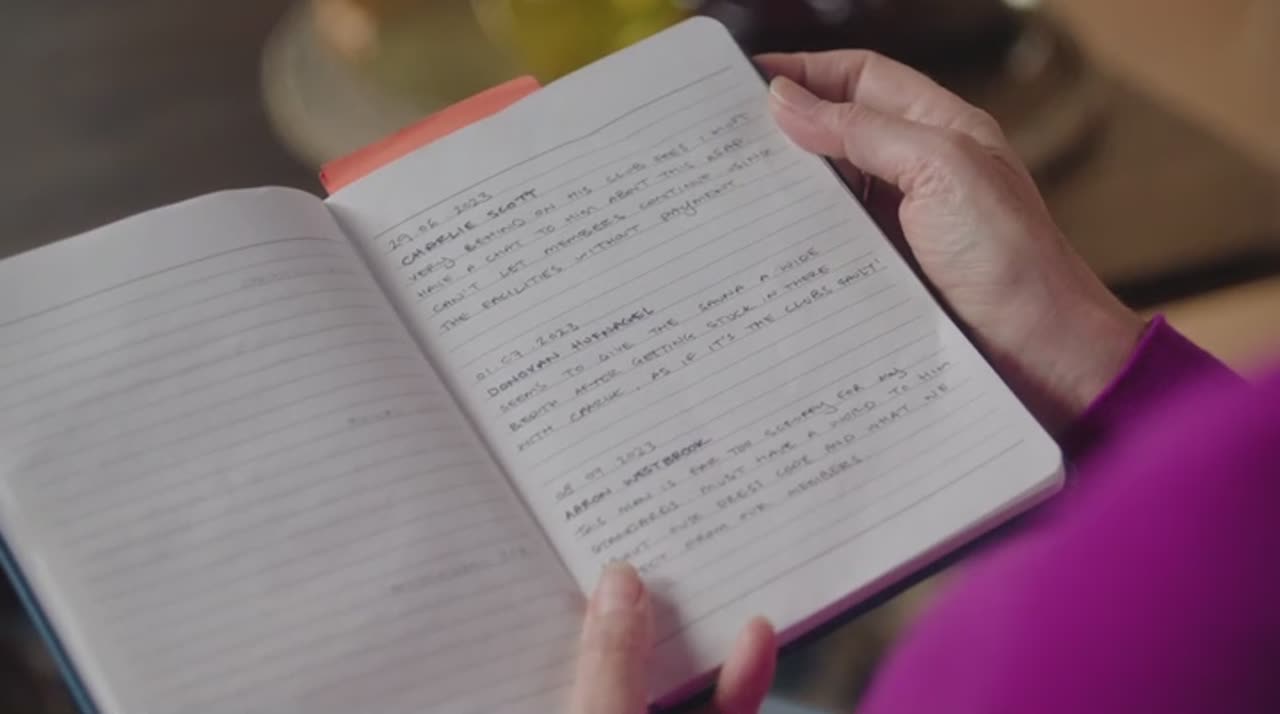 29.06 2023
CHARLIE SCOTT
VERY BEHIND ON HIS CLUB FEES I MUST
HAVE A CHAT TO HIM ABOUT THIS ASAP
CAN'T LET MEMBERS CONTINUE USING
THE FACILITIES WITHOUT PAYMENT
01.07 2023
DONOVAN HUFNAGEL
SEEMS TO GIVE THE SAUNA A WIDE
BERTH AFTER GETTING STUCK IN THERE
WITH CARRIE, AS IF IT'S THE CLUBS FAULT!
08 07 2023
AARON WESTBROOK
THIS MAN IS FAR TOO SCRUFFY FOR MY
STANDARDS MUST HAVE A WORD TO HIM
ABOUT OUR DRESS CODE AND WHAT WE
FROM OUR MEMBERS